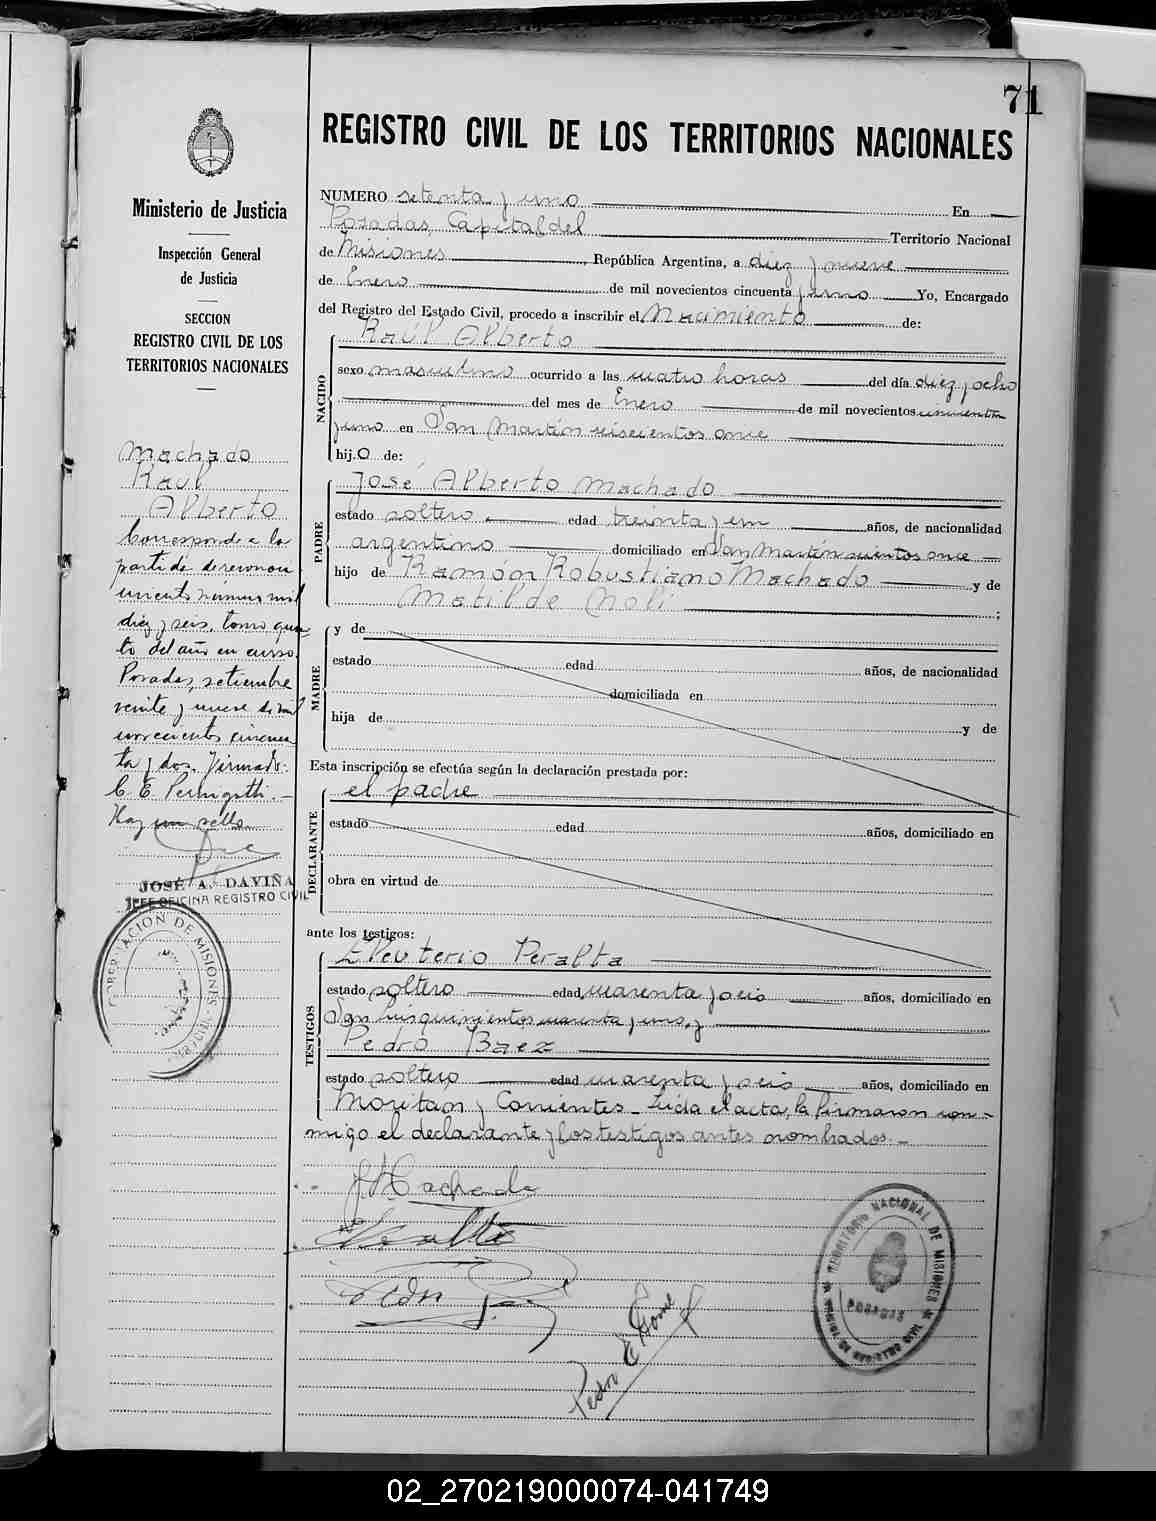 71
REGISTRO CIVIL DE LOS TERRITORIOS NACIONALES
Ministerio de Justicia
Inspección General
de Justicia
SECCION
REGISTRO CIVIL DE LOS
TERRITORIOS NACIONALES
Machado
Raúl
Alberto
Corresponde a la
partida de reconoci
miento número mil
diez y seis, tomo cuar
to del año en curso.
Posadas, setiembre
veinte y nueve de mil
novecientos cincuen
ta y dos. Firmado:
C. E.
Hay un sello.
JOSÉ A. DAVIÑA
JEFE OFICINA REGISTRO CIVIL
GOBERNACION DE MISIONES
NUMERO setenta y uno En
Posadas, Capital del Territorio Nacional
de Misiones, República Argentina, a diez y nueve
de Enero de mil novecientos cincuenta y uno Yo, Encargado
del Registro del Estado Civil, procedo a inscribir el Nacimiento de:
NACIDO
Raúl Alberto
sexo masculino ocurrido a las cuatro horas del día diez y ocho
del mes de Enero de mil novecientos cincuenta
y uno en San Martín seiscientos once
hij.o de:
PADRE
José Alberto Machado
estado soltero edad treinta y un años, de nacionalidad
argentino domiciliado en San Martín seiscientos once
hijo de Ramón Robustiano Machado y de
Matilde Noli ;
MADRE
y de
estado edad años, de nacionalidad
domiciliada en
hija de y de
Esta inscripción se efectúa según la declaración prestada por:
DECLARANTE
el padre
estado edad años, domiciliado en
obra en virtud de
ante los testigos:
TESTIGOS
Eleuterio Peralta
estado soltero edad cuarenta y seis años, domiciliado en
San Luis quinientos cuarenta y uno, y
Pedro Baez
estado soltero edad cuarenta y seis años, domiciliado en
Moritan y Corrientes_ Leída el acta, la firmaron con-
migo el declarante y los testigos antes nombrados._
JAMachado
EPeralta
Pedro
Pedro E Gomez
TERRITORIO NACIONAL DE MISIONES
POSADAS
02_270219000074-041749